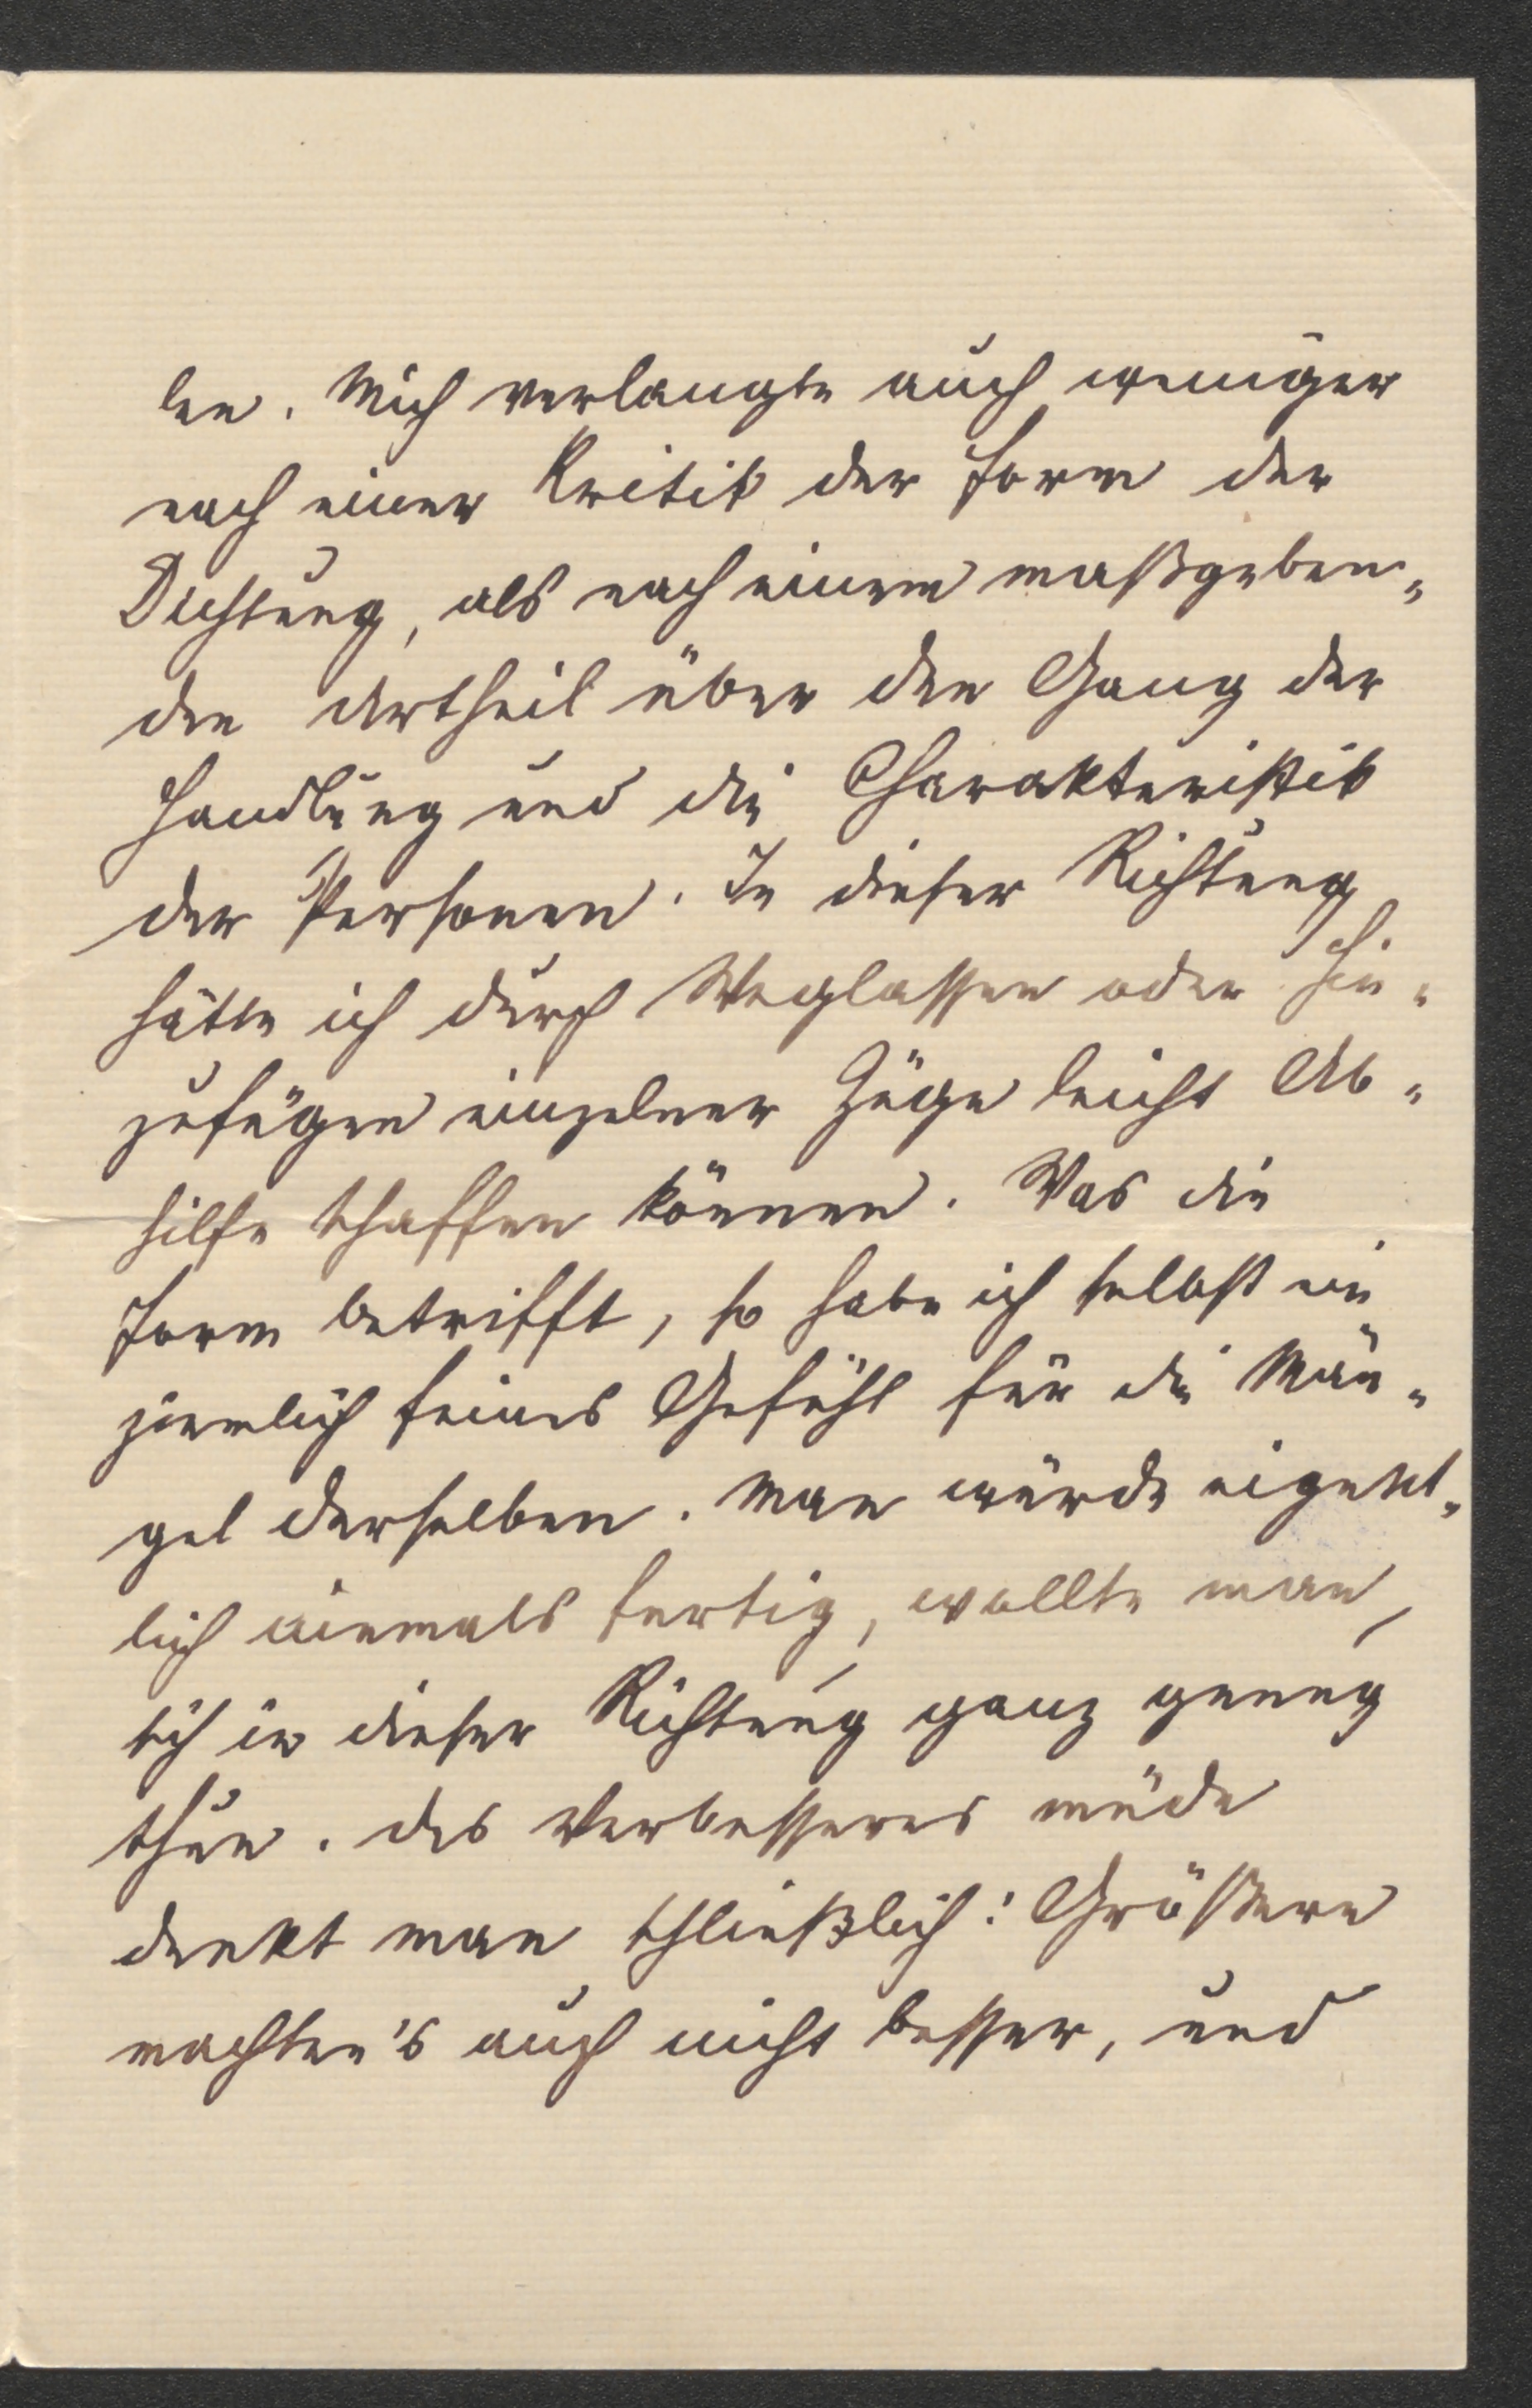 len. Mich verlangte auch weniger
nach einer Kritik der Form der
Dichtung, als nach einem maßgeben-
den Urtheil über den Gang der
Handlung und die Charakteristik
der Personen. In dieser Richtung
hätte ich durch Weglassen oder Hin-
zufügen einzelner Züge leicht Ab-
hilfe schaffen können. Was die
Form betrifft, so habe ich selbst ein
ziemlich feines Gefühl für die Män-
gel derselben. Man würde eigent-
lich niemals fertig, wollte man
sich in dieser Richtung ganz genug
thun. Des Verbesserns müde
denkt man schließlich: Größere
machten's auch nicht besser, und